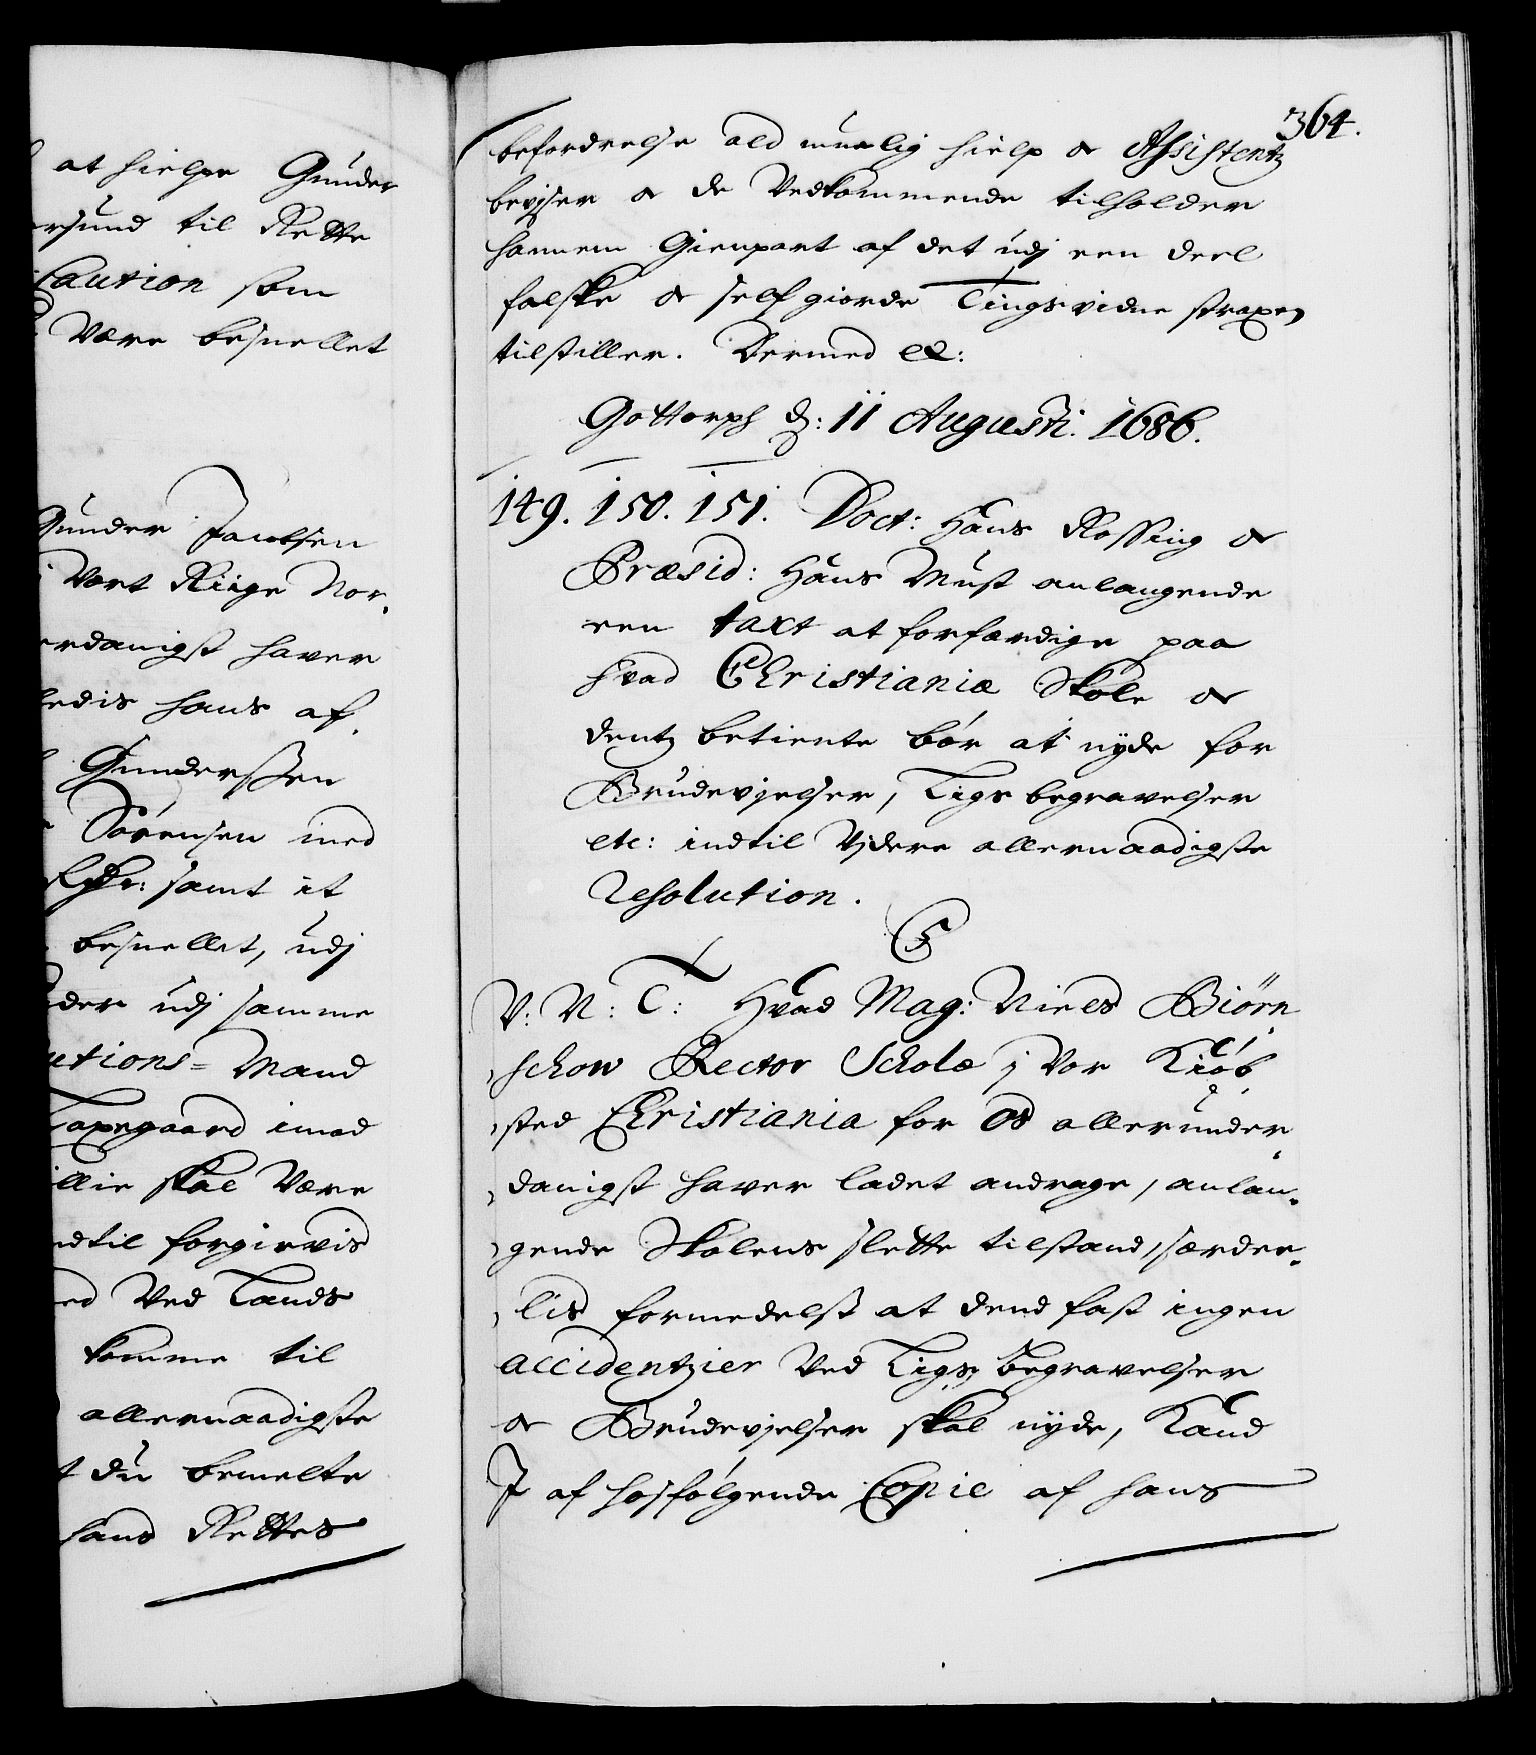 at hielpe Gunder
ersund til Rette
Caution som
Være besnellet
Gunder Jacobsen
Vort Riige Nor-
erdanigst haver
ledis hans af-
Gunderssen
Sörensen med
samt it
besnellet, udj
der udj samme
utions= Mand
Taxegaard imod
illie skal Være
indtil forgievis
ed Ved Lands
komme til
allernaadigste
t du bemelte
hand Rettes
364.
befordrelse ald muelig hielp oc Assistentz
beviser oc de Vedkommende tilholder
hannem Gienpart af det udj een deel
falske oc self giorde Tingsvidne strax
tilstiller. Dermed etc:
Gottorph d: 11 Augusti. 1686.
149. 150. 151. Doct: Hans Rossing oc
Præsid: Hans Must anlangende
een taxt at forfærdige paa
hvad Christianiæ Skole oc
dentz betiente bör at nyde for
Brudevjelser, Ligs begravelser
etc: indtil Vjdere allernaadigste
Resolution.
C5
V: N: T: Hvad Mag: Niels Biörn
schow Rector Scholæ j Vor Kiöb
sted Christiania for Os allerunder
danigst haver ladet andrage, anlan-
gende Skolens slette tilstand, særde-
lis formedelst at dend fast ingen
accidentzier Ved Ligs begravelser
oc Brudevjelser skal nyde, Kand
J af hosfölgende Copie af hans